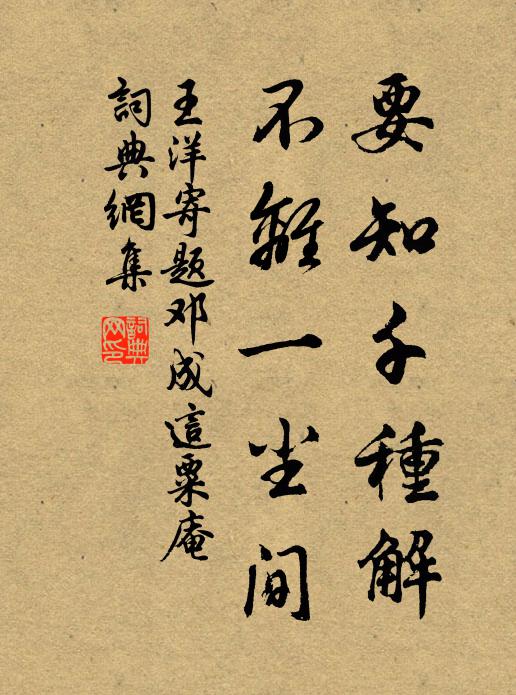 要知千種解
不離一坐间
王洋寄題邓成這粟庵
詞典網集
詞典
网印